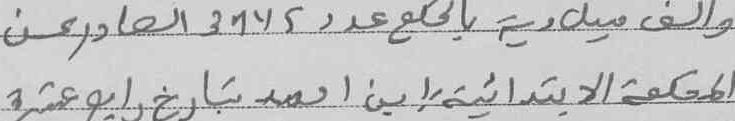 والف ميلادية بالحكم عدد 3745 الصادر عن
المحكمة الابتدائية براين احمد بتاريخ رابع عشر